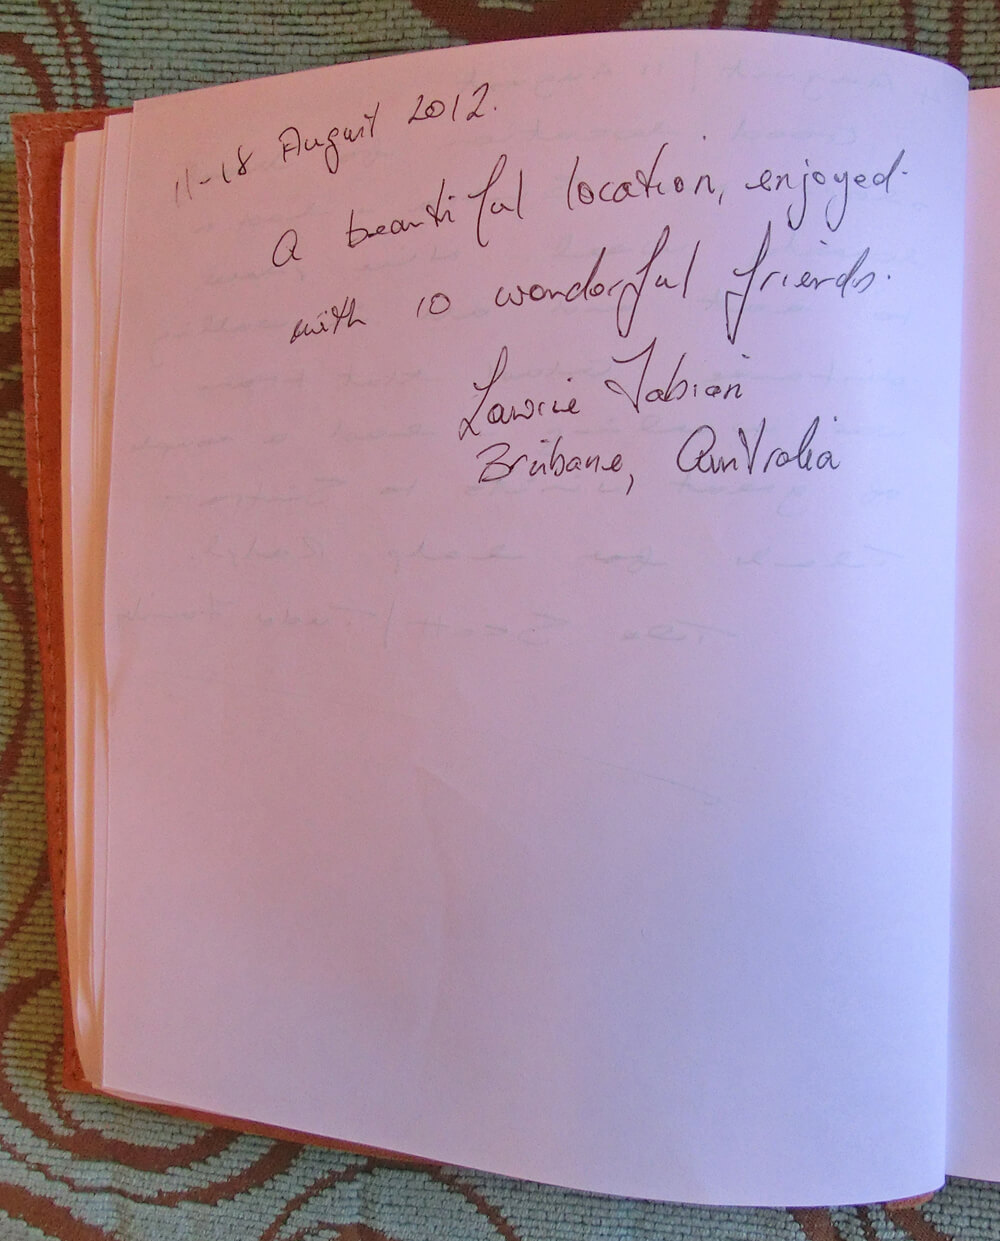 11-18 August 2012.
A beautiful location, enjoyed
with 10 wonderful friends.
Lawrie Fabian
Brisbane, Australia